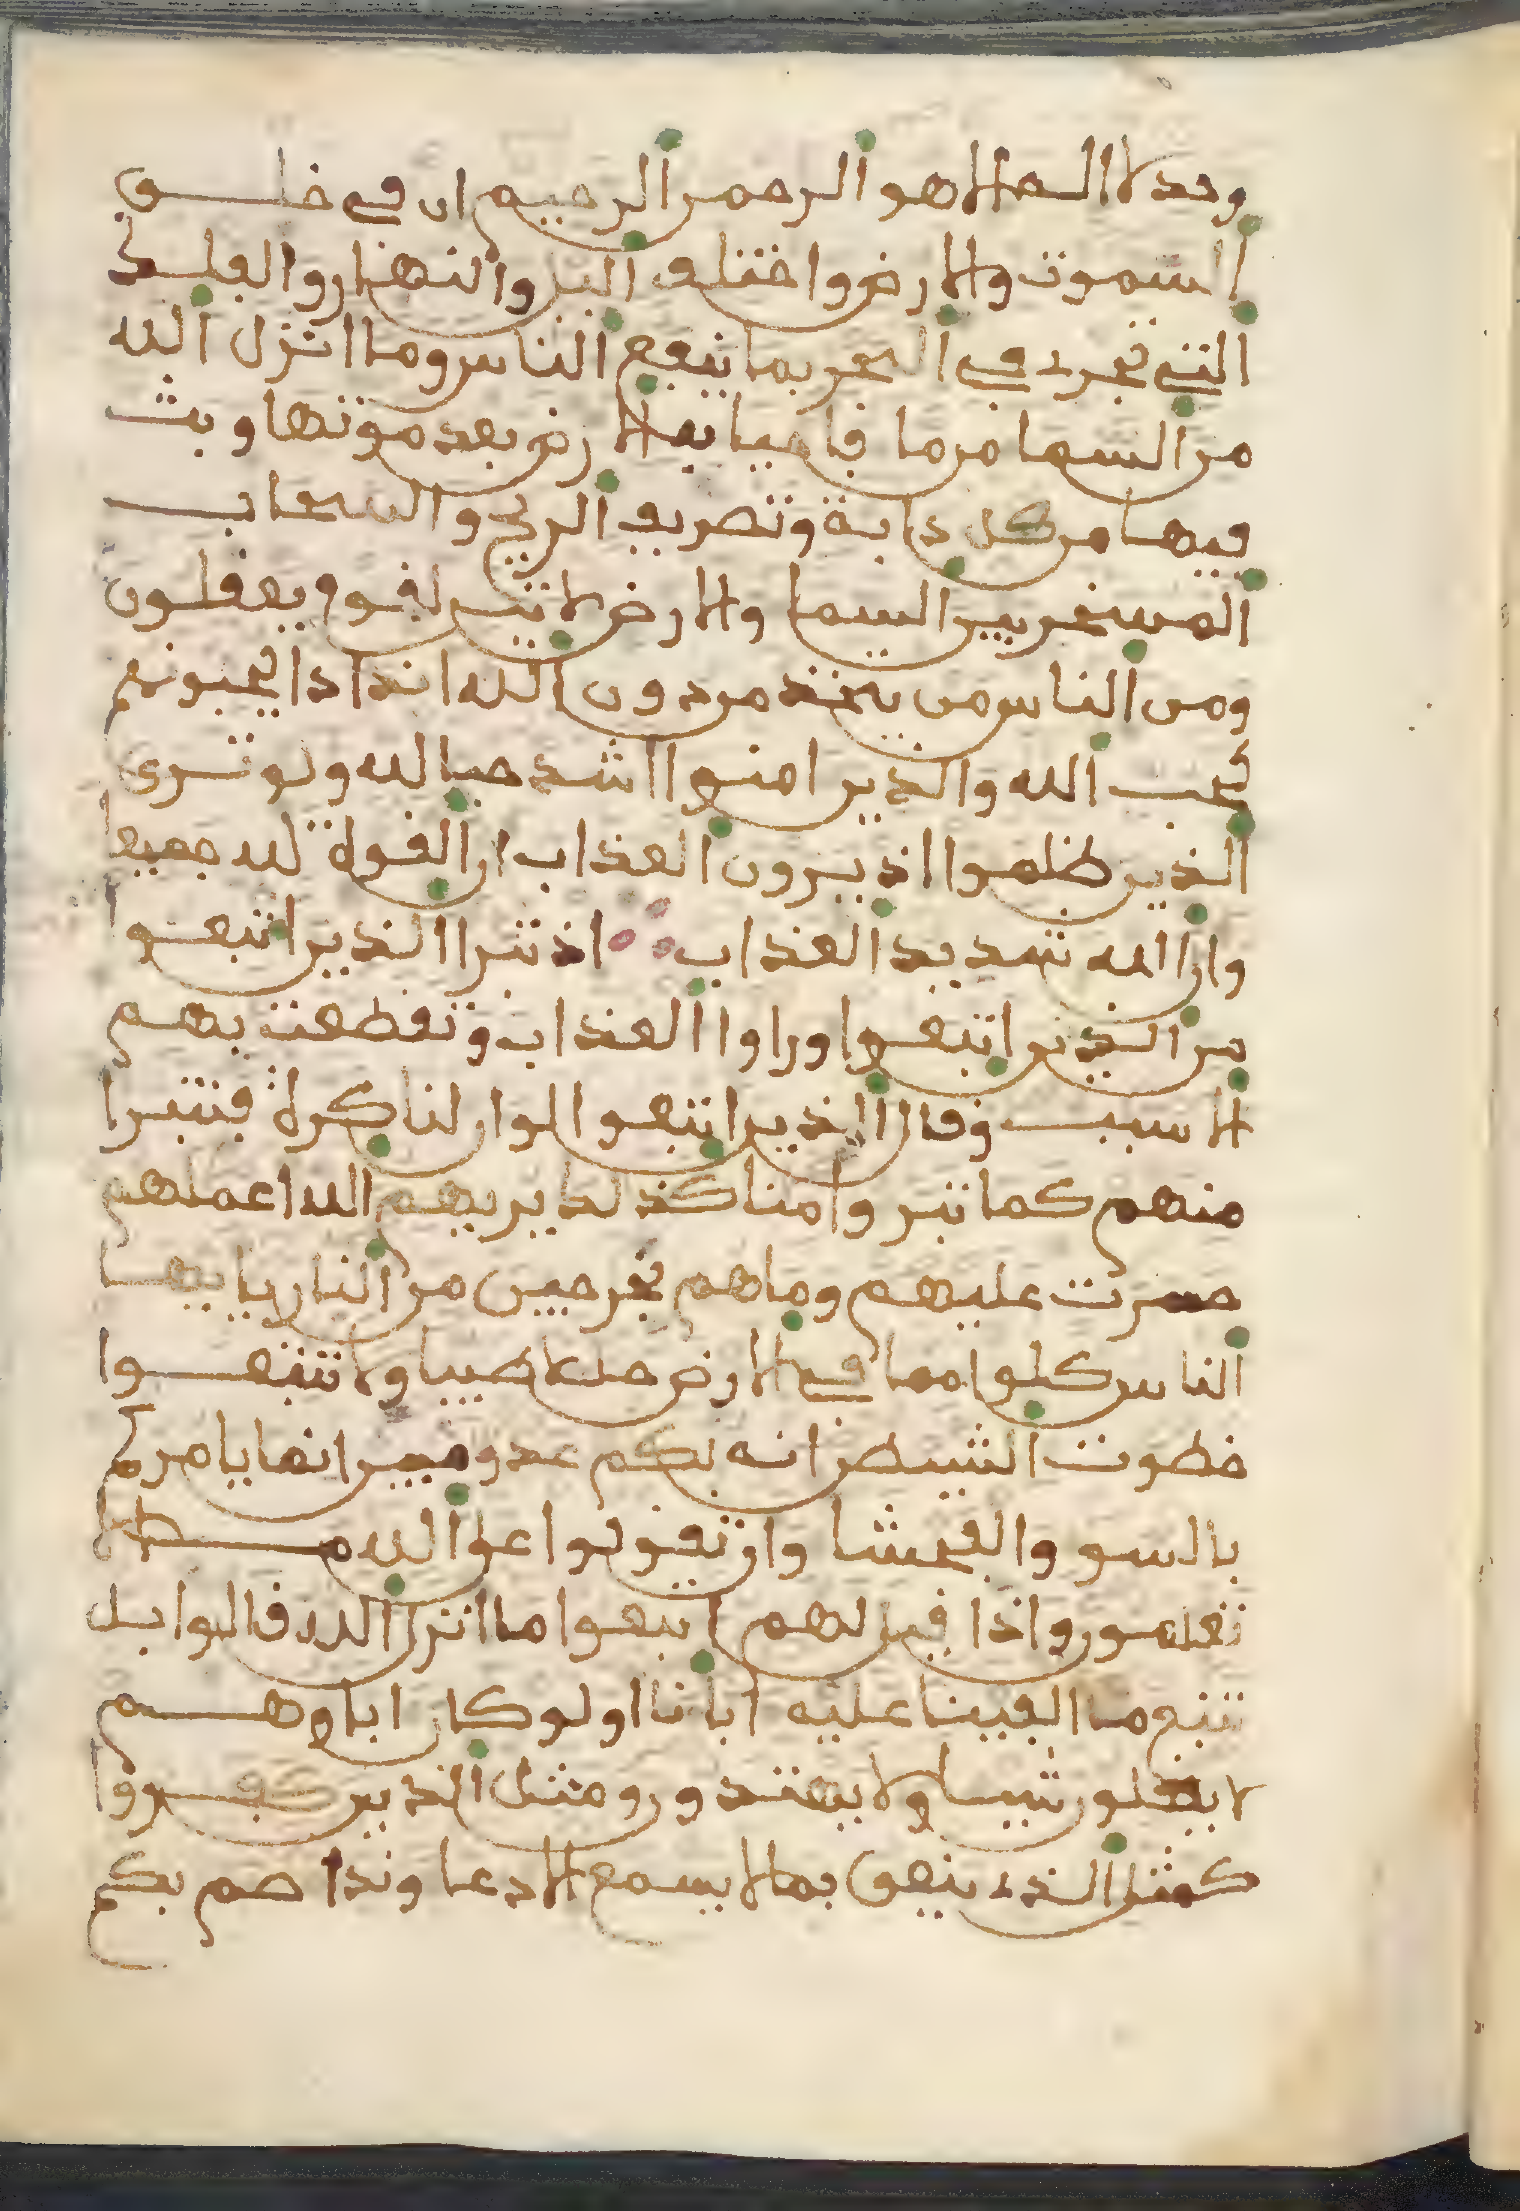 وحد لا اله الا هو الرحمن الرحيم ان في خلق
السموت والارض واختلف اليل والنهار والفلك
التي تجري في البحر بما ينفع الناس وما انزل الله
من السما من ما فاحيا به الارض بعد موتها وبث
فيها من كل دابة وتصريف الريح والسحاب
المسخر بين السما والارض لايت لقوم يعقلون
ومن الناس من يتخذ من دون الله اندادا يحبونهم
كحب الله والذين امنوا اشد حبا لله ولو ترى
الذين ظلموا اذ يرون العذاب ان القوة لله جميعا
وان الله شديد العذاب اذ تبرا الذين اتبعوا
من الذين اتبعوا وراوا العذاب وتقطعت بهم
الاسبب وقال الذين اتبعوا لو ان لنا كرة فنتبرا
منهم كما تبروا منا كذلك يريهم الله اعملهم
حسرت عليهم وما هم بخرجين من النار يايها
الناس كلوا مما في الارض حللا طيبا ولا تتبعوا
خطوت الشيطن انه لكم عدو مبين انما يامركم
بالسو والفحشا وان تقولوا على الله ما لا
تعلمون واذا قيل لهم اتبعوا ما انزل الله قالوا بل
نتبع ما الفينا عليه ابانا اولو كان اباوهم
لا يعقلون شيا ولا يهتدون ومثل الذين كفروا
كمثل الذي ينعق بما لا يسمع الا دعا وندا صم بكم